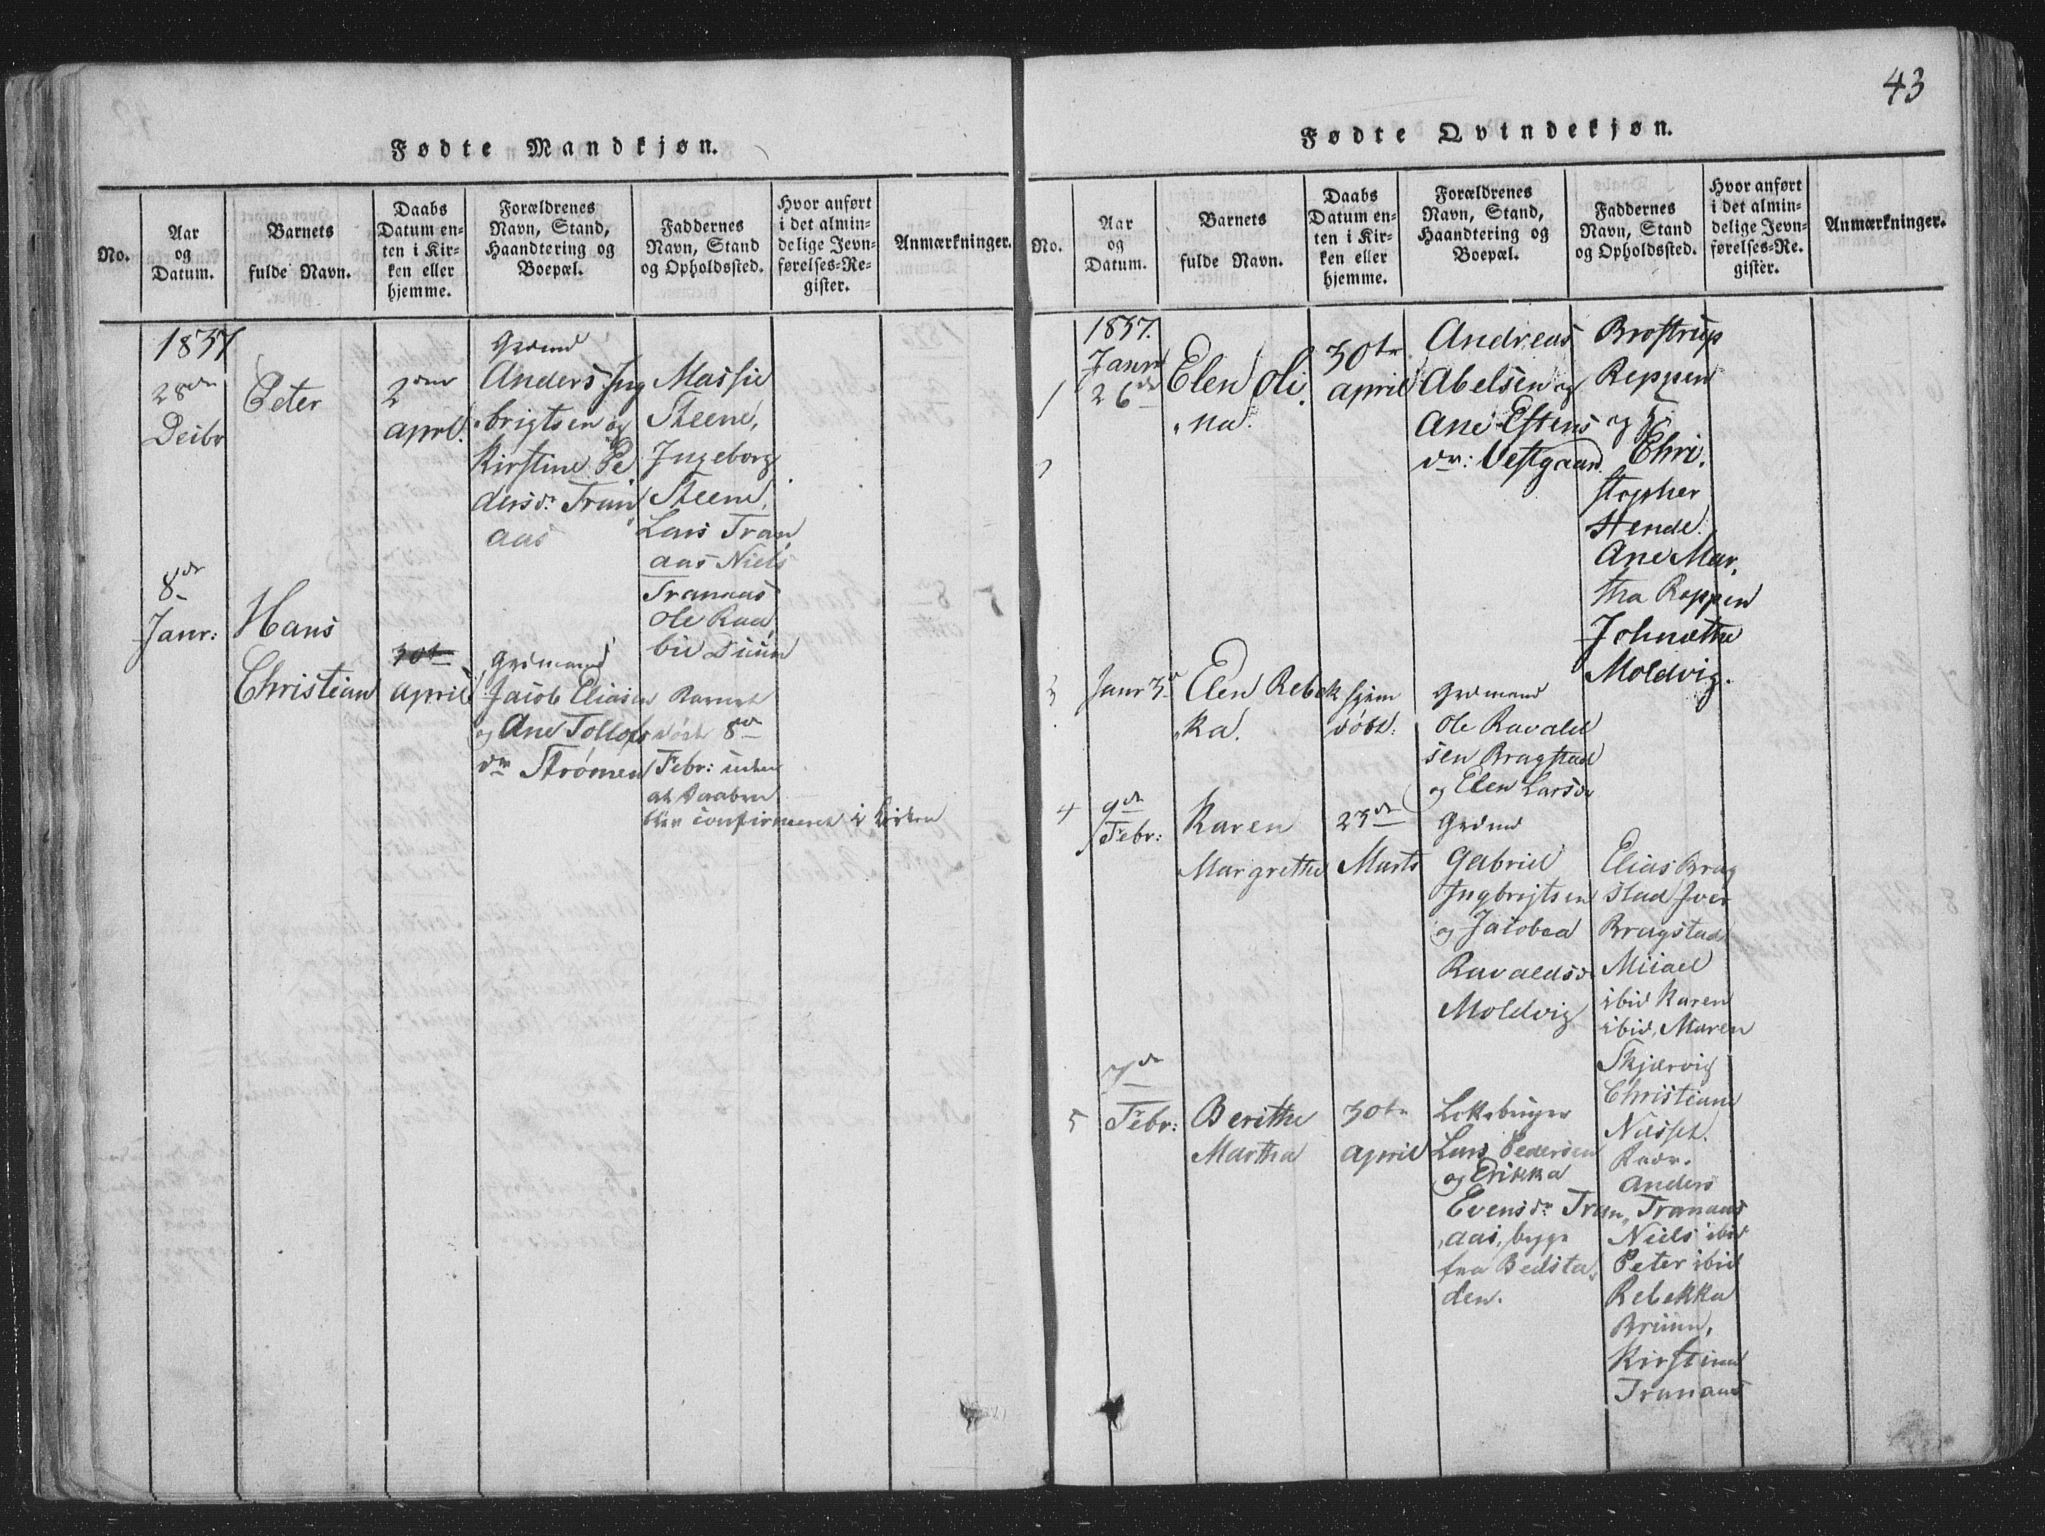 43
Fødte Mandkjøn.
No.
Aar
og
Datum.
Barnets
fulde Navn.
Daabs
Datum en-
ten i Kir-
ken eller
hjemme.
Forældrenes
Navn, Stand,
Haandtering og
Boepæl.
Faddernes
Navn, Stand
og Opholdssted.
Hvor anført
i det almin-
delige Jevn-
førelses-Re-
gister.
Anmærkninger.
1837
28de
Decbr
Peter
2den
april.
Grdmd
Anders Ing
brigtsen og
Kirstine Pe
dersdr Tran
aas
Steene,
Ingeborg
Steene,
Lars Tran
aas Niels
Tranaas
Ole Raa
8de
Janr:
Hans
Christian
30te
april
Grdmand
Jacob Eliasen
og Ane Tollofs
dr Strømen
Barnet
døde 8de
Febr: uden
at Daaben
blev confirmeret i Kirken
Fødte Qvindekjøn.
No.
Aar
og
Datum.
Barnets
fulde Navn.
Daabs
Datum en-
ten i Kir-
ken eller
hjemme.
Forældrenes
Navn, Stand,
Haandtering og
Boepæl.
Faddernes
Navn, Stand
og Opholdssted.
Hvor anført
i det almin-
delige Jevn-
førelses-Re-
gister.
Anmærkninger.
1837.
1
Janr
26de
Elen Oli
na.
30te
april
Andreas
Abelsen og
Ane Estens
dr: Vestgaard
Brostrup
Reppen
og
Chri
stopher
Hende.
Ane Mar
tha Reppen
Johnethe
Moldvig.
3
Janr 3d
Elen Rebek
ka.
hjem
døbt:
Grdmand
Ole Ravald
sen Bragstad
og Elen Larsdr
4
9de
Febr:
Karen
Margrethe
23de
Marts
Grdmd
Gabriel
Ingbrigtsen
og Jacobea
Ravaldsdr
Moldvig
Elias Brag
stad Iver
Bragstad
Micael
ibid Karen
ibid, Maren
Skjærvig
Christiane
Næsset.
5
7de
Febr:
Berithe
Martha
30te
april
Lars Pedersen
og Erikka
Evensdr Tran
aas, byge
fra Bedsta
den.
Anders
Tranaas
Niels ibid
Peter ibid
Rebekka
Bruun,
Kirstine
Tranaas